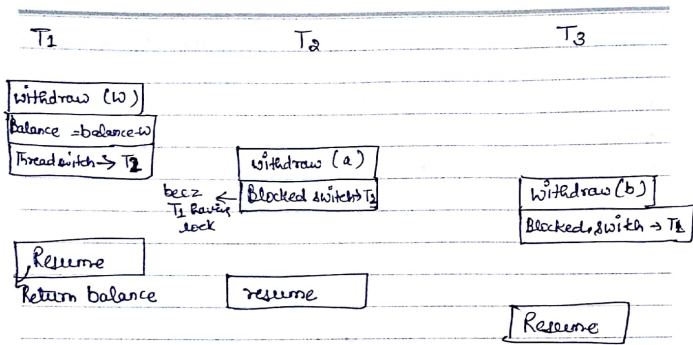 T1 T2 T3
withdraw (w)
Balance = balance-w
Thread switch → T2
withdraw (a)
becz ← Blocked switch → T3
T1 having
lock
withdraw (b)
Blocked, switch → T1
Resume
Return balance
resume
Resume